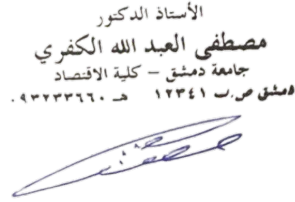 الأستاذ الدكتور
مصطفى العبد الله الكفري
جامعة دمشق – كلية الاقتصاد
دمشق ص.ب ١٢٣٤١ هـ ٠٩٣٢٣٣٦٦٠